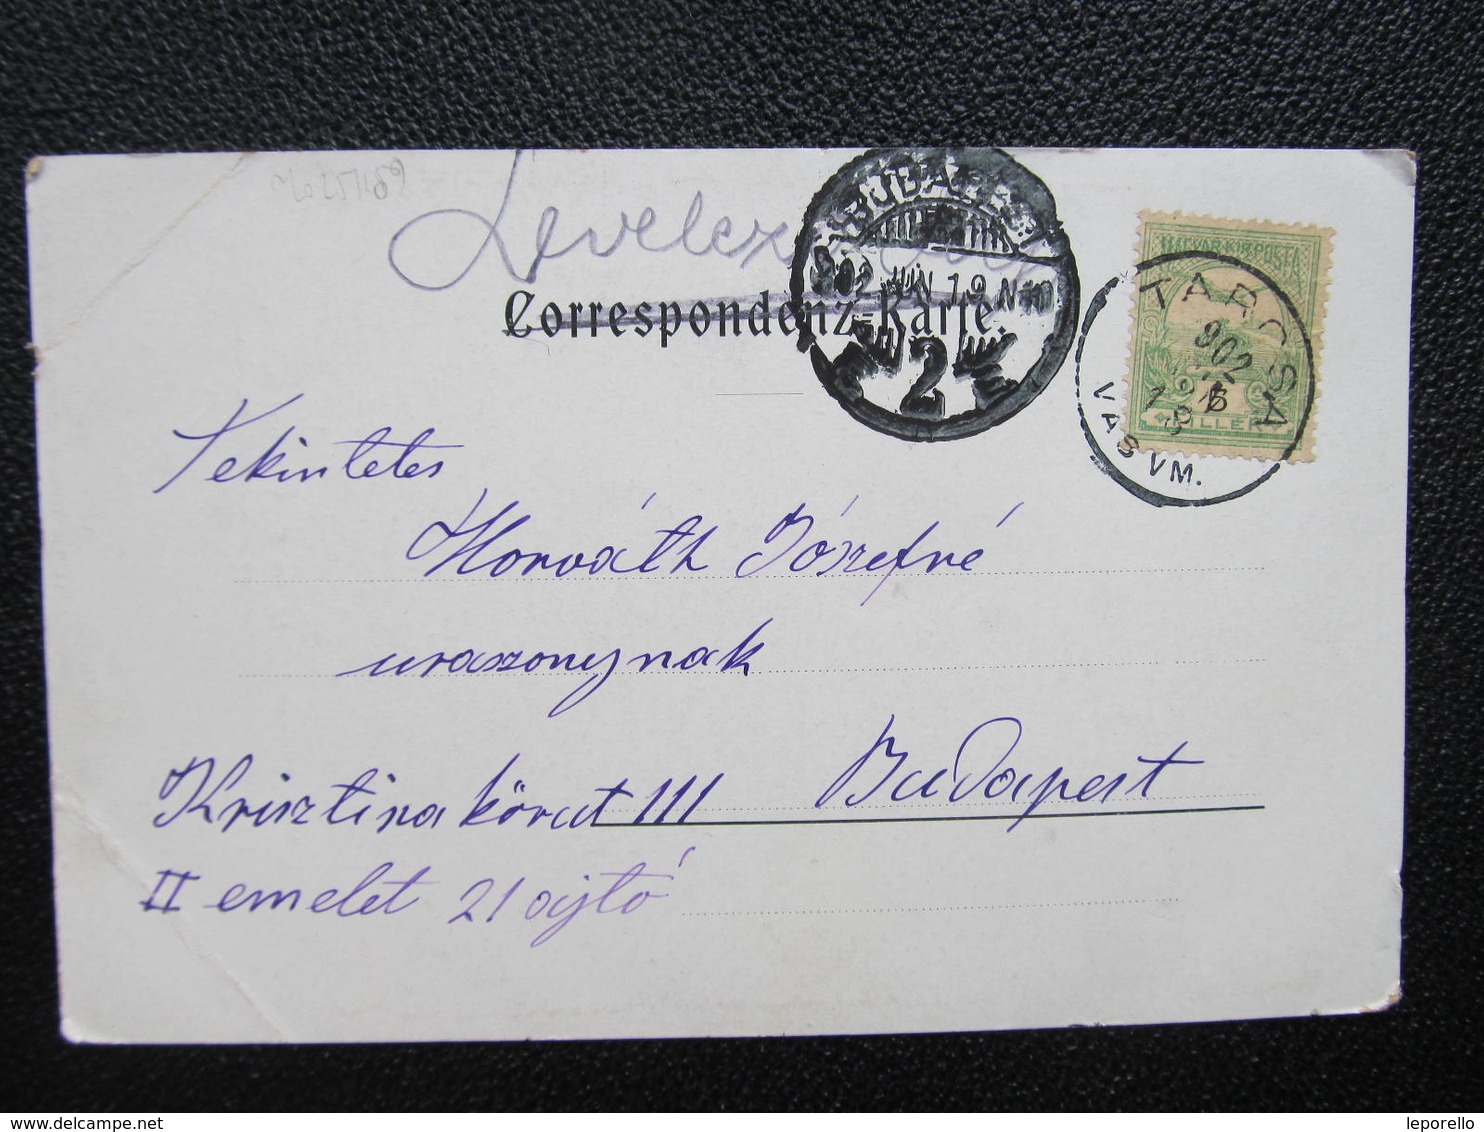 Levelező
Correspondenz-Karte.
BUDAPEST
902 JUN 19 N10
2
MAGYAR KIR. POSTA
FILLÉR
TARCSA
902
VASVM.
Tekintetes
Horváth Józsefné
uraszonynak
Krisztina körut 111 Budapest
II emelet 21 ajtó
delcampe.net
leporello